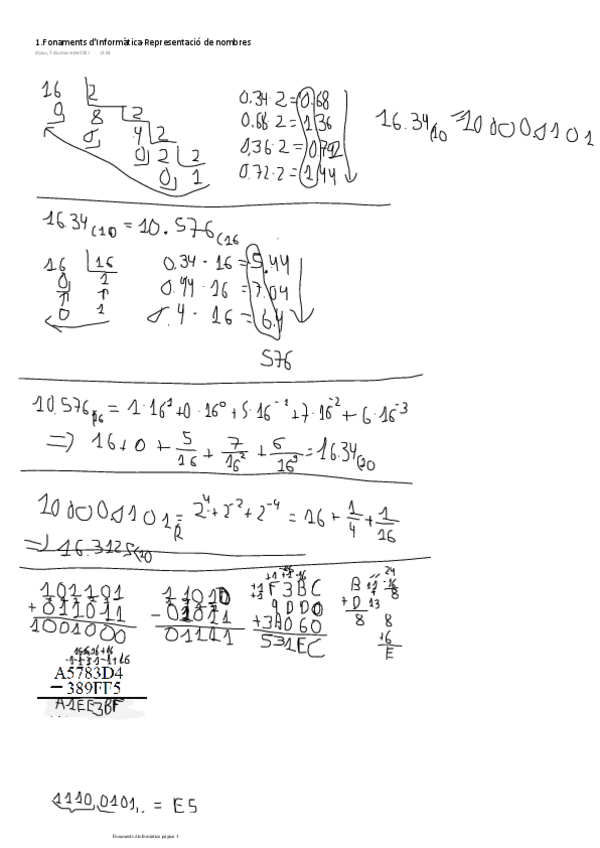 1.Fonaments d'Informàtica-Representació de nombres
16 2
0 8 2
0 4 2
0 2 2
0 1
0.34·2=0.68
0.68·2=1.36
1,36·2=0.792
0.72·2=1.44
16.34(10 =10000.0101
16.34(10 = 10.576(16
16 16
0 1
0 1
0.34·16=5.44
0.44·16=7.04
0.4·16=6.4
576
10.576(16 = 1·16¹+0·16⁰+5·16⁻¹+7·16⁻²+6·16⁻³
=> 16+0+5/16+7/16²+6/16³=16.34(10
10000.0101(2 = 2⁴+2⁻²+2⁻⁴=16+1/4+1/16
=> 16.3125(10
101101
+011011
1001000
11010
-01011
01111
1F3BC
9DD0
+3A060
531EC
B
+D
8
24
-16
8
8
+6
E
A5783D4
−389FF5
A1EE3BF
1110,0101,. = E5
Fonaments d'Informàtica página 1